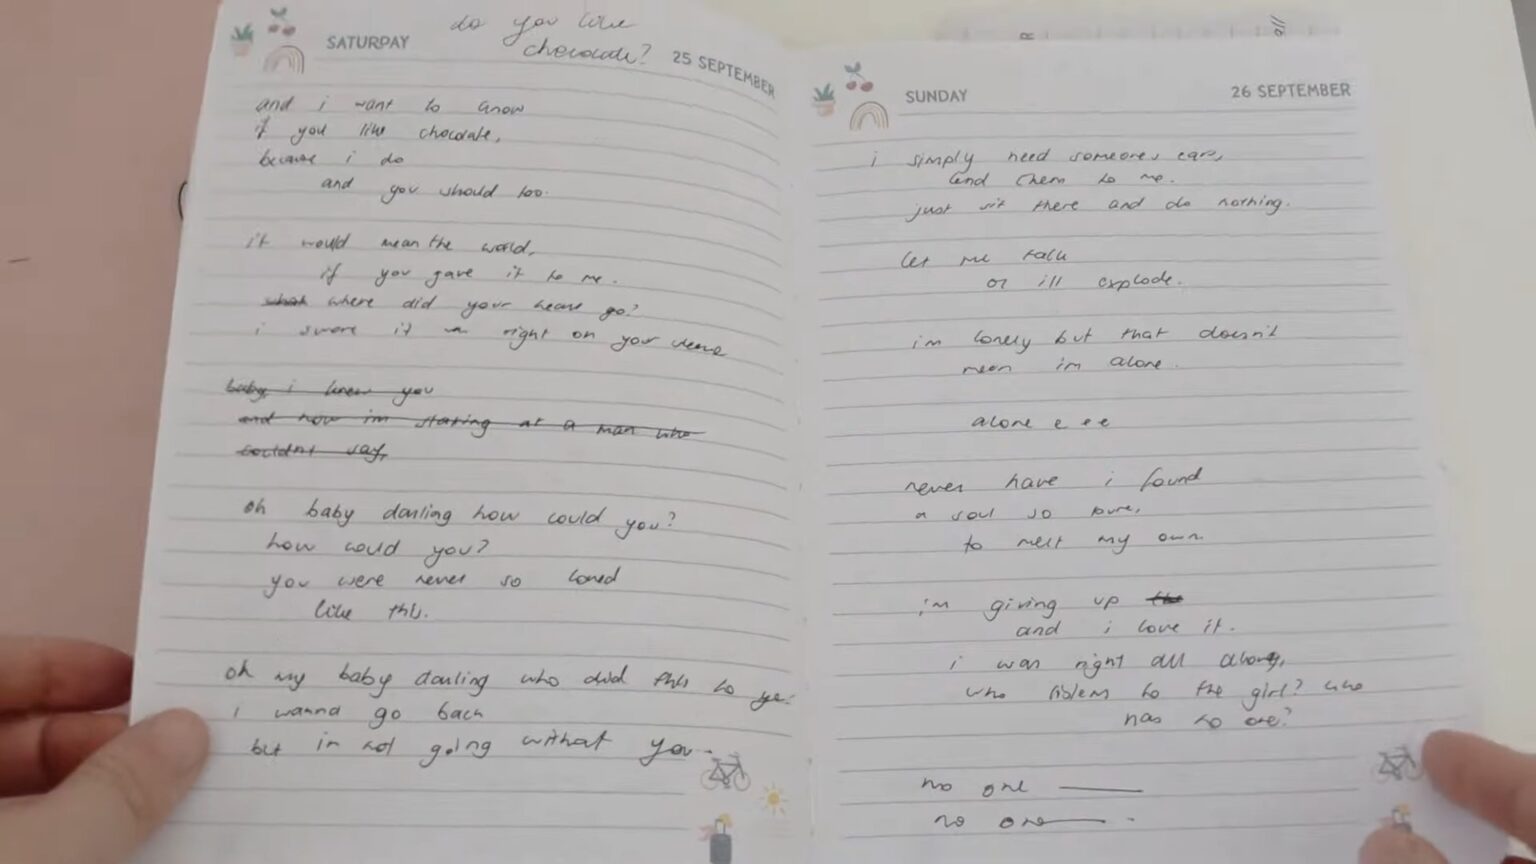 do you like
chocolate?
SATURDAY 25 SEPTEMBER
and i want to know
if you like chocolate,
because i do
and you should too.
it would mean the world,
if you gave it to me.
what where did your heart go?
i swore it was right on your sleeve
baby i knew you
and now im staring at a man who
couldnt say,
oh baby darling how could you?
how could you?
you were never so loved
like this.
oh my baby darling who did this to ya?
i wanna go back
but im not going without you.
SUNDAY 26 SEPTEMBER
i simply need someones ears,
lend them to me.
just sit there and do nothing.
let me talk
or ill explode.
im lonely but that doesn't
mean im alone.
alone e e e
never have i found
a soul so pure,
to melt my own
im giving up the
and i love it.
i was right all along,
who listens to the girl? who
has no one?
no one
no one